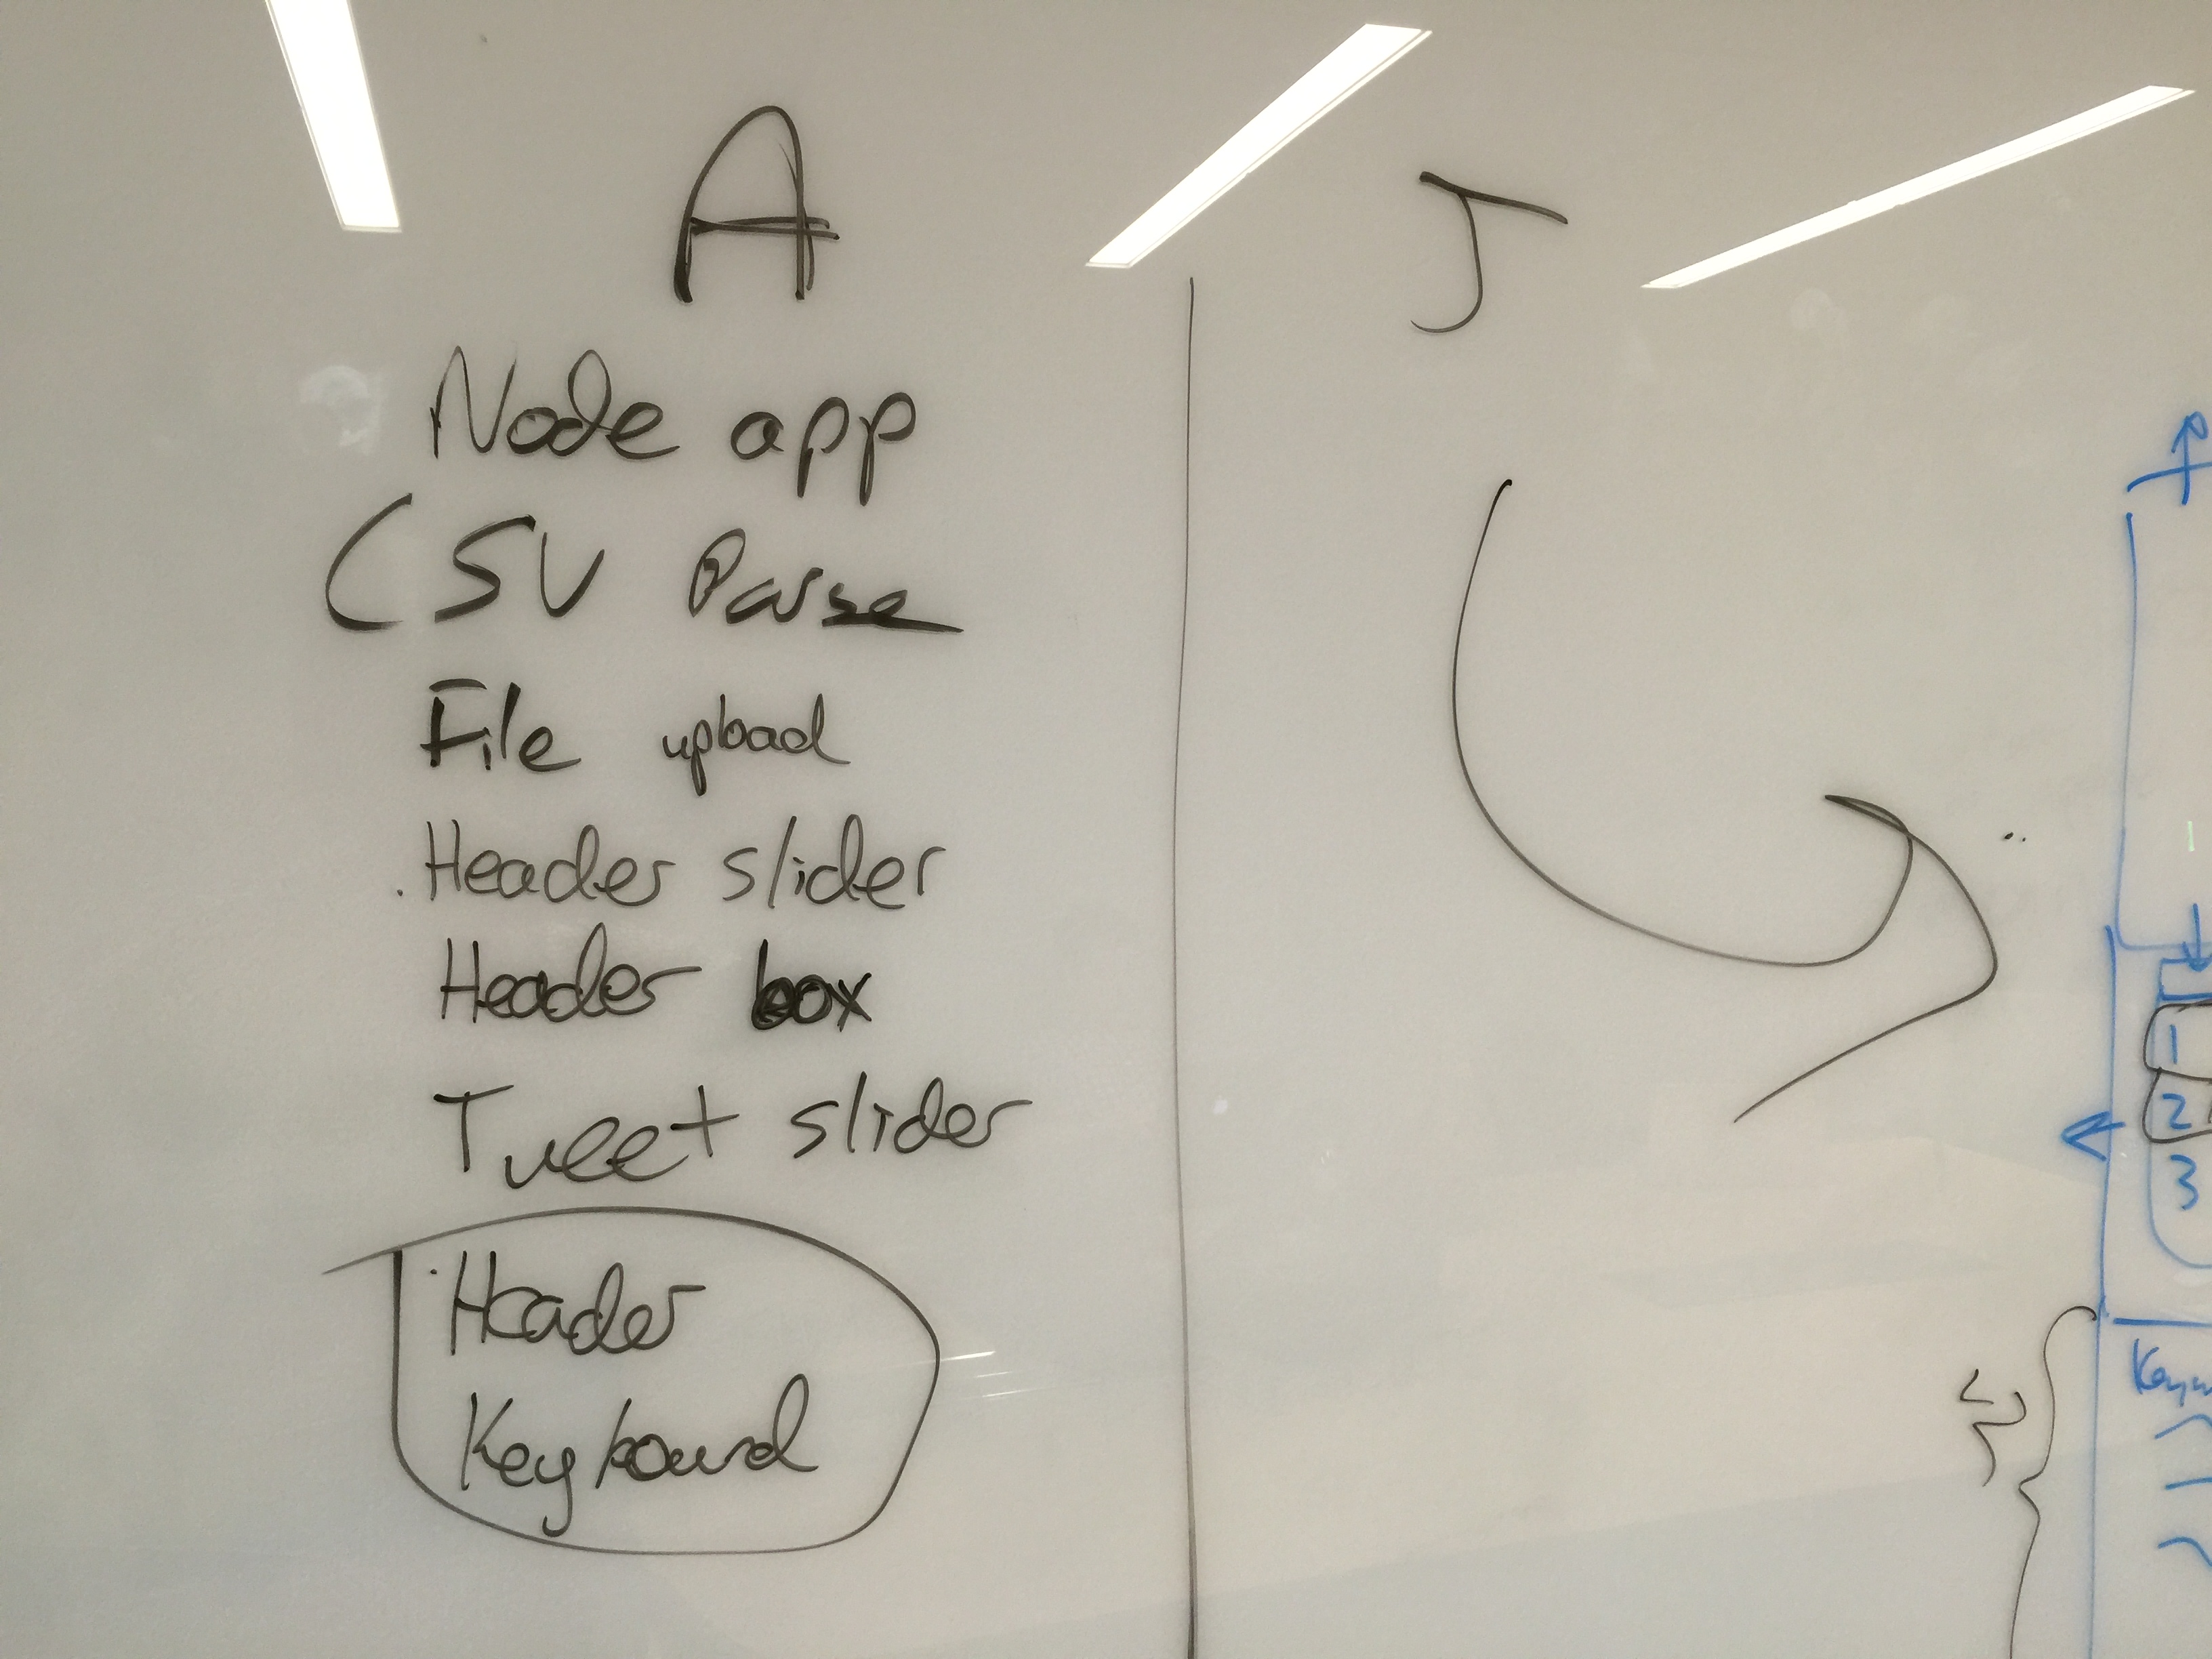 A
Node app
CSV Parse
File upload
Header slider
Header box
Tweet slider
Header
Keyboard
J
1
2
3